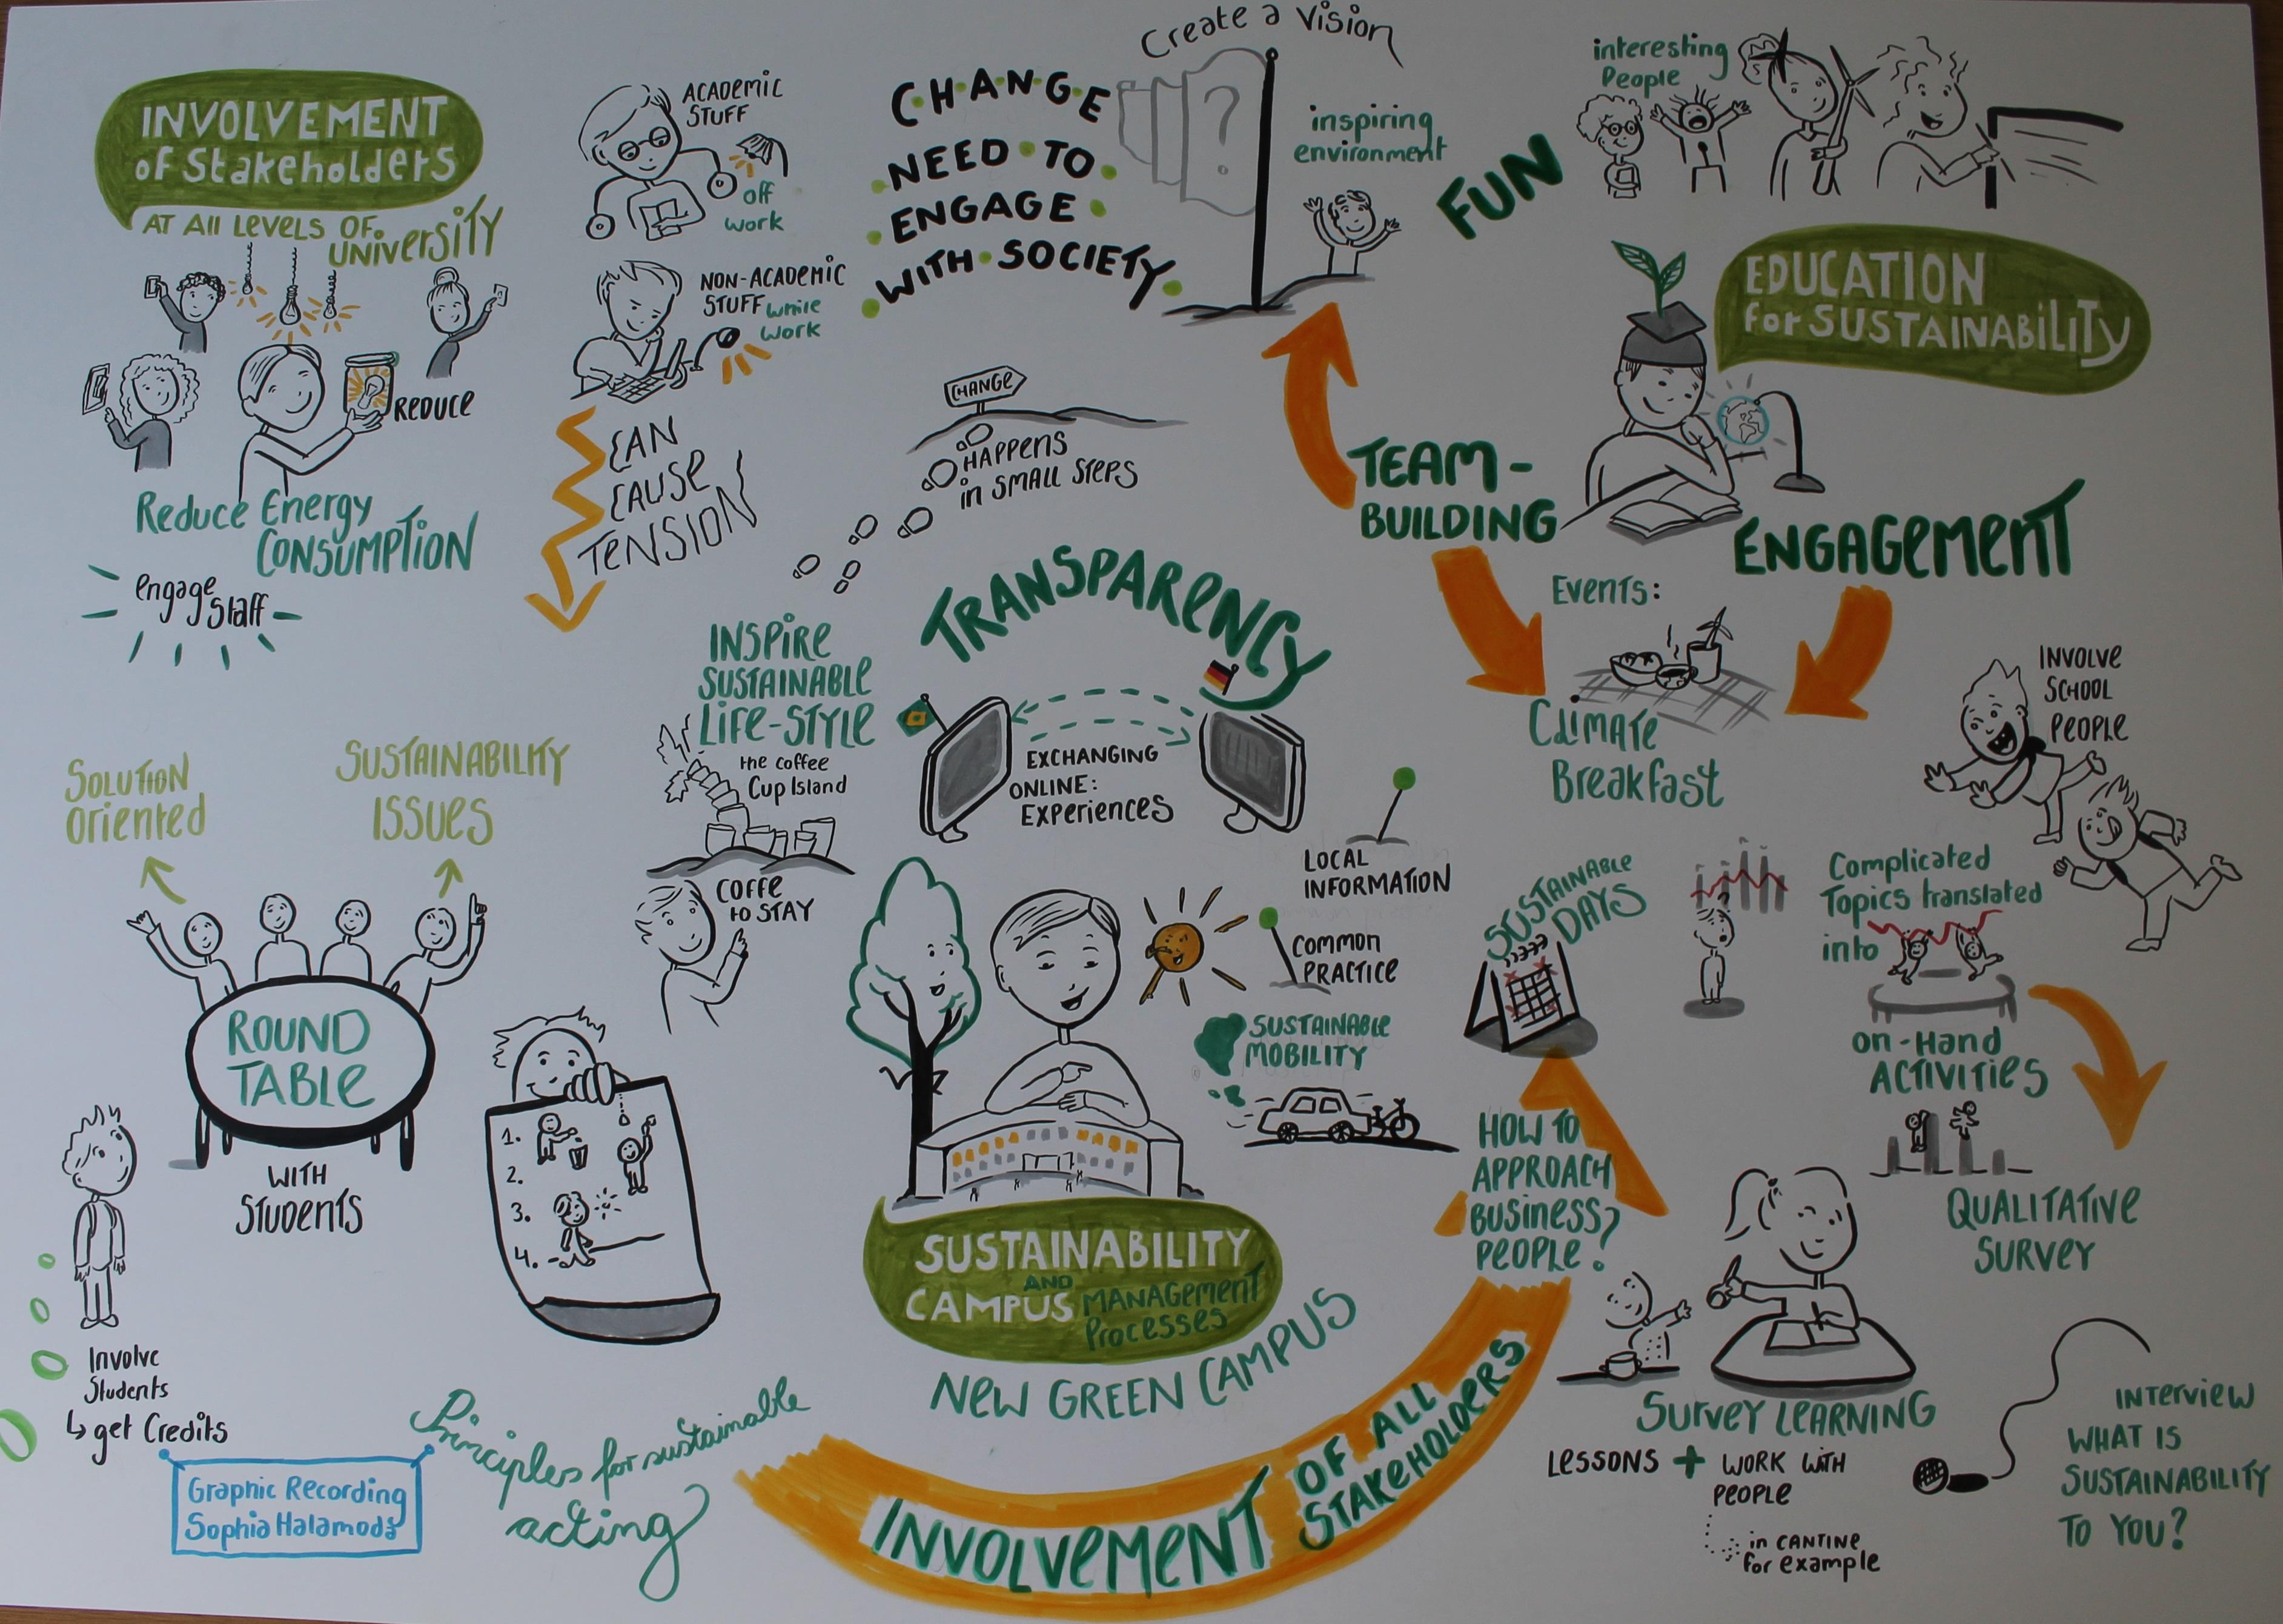 INVOLVEMENT
of Stakeholders
AT All LEVELS OF
UNIVERSITY
REDUCE
Reduce Energy
CONSUMPTION
engage
Staff
ACADEMIC
STUFF
off
work
NON-ACADEMIC
STUFF while
work
CAN
CAUSE
TENSION
CHANGE
NEED TO
ENGAGE
WITH SOCIETY
Create a Vision
?
inspiring
environment
CHANGE
HAPPENS
in SMALL STEPS
FUN
interesting
People
EDUCATION
for SUSTAINABILITY
TEAM-
BUILDING
ENGAGEMENT
Events:
Climate
Breakfast
INVOLVE
SCHOOL
PEOPLE
Complicated
Topics translated
into
on-Hand
ACTIVITIES
QUALITATIVE
SURVEY
SUSTAINABLE
DAYS
HOW TO
APPROACH
BUSINESS
PEOPLE?
SURVEY LEARNING
LESSONS + WORK WITH
PEOPLE
in CANTINE
for example
INTERVIEW
WHAT IS
SUSTAINABILITY
TO YOU?
TRANSPARENCY
EXCHANGING
ONLINE:
EXPERIENCES
LOCAL
INFORMATION
COMMON
PRACTICE
SUSTAINABLE
MOBILITY
SUSTAINABILITY
AND
CAMPUS MANAGEMENT
Processes
NEW GREEN CAMPUS
INVOLVEMENT OF ALL
STAKEHOLDERS
INSPIRE
SUSTAINABLE
LIFE-STYLE
the coffee
Cup Island
COFFE
to STAY
SOLUTION
Oriented
SUSTAINABILITY
ISSUES
ROUND
TABLE
WITH
STUDENTS
1.
2.
3.
4.
Involve
Students
↳ get Credits
Principles for sustainable
acting
Graphic Recording
Sophia Halamoda